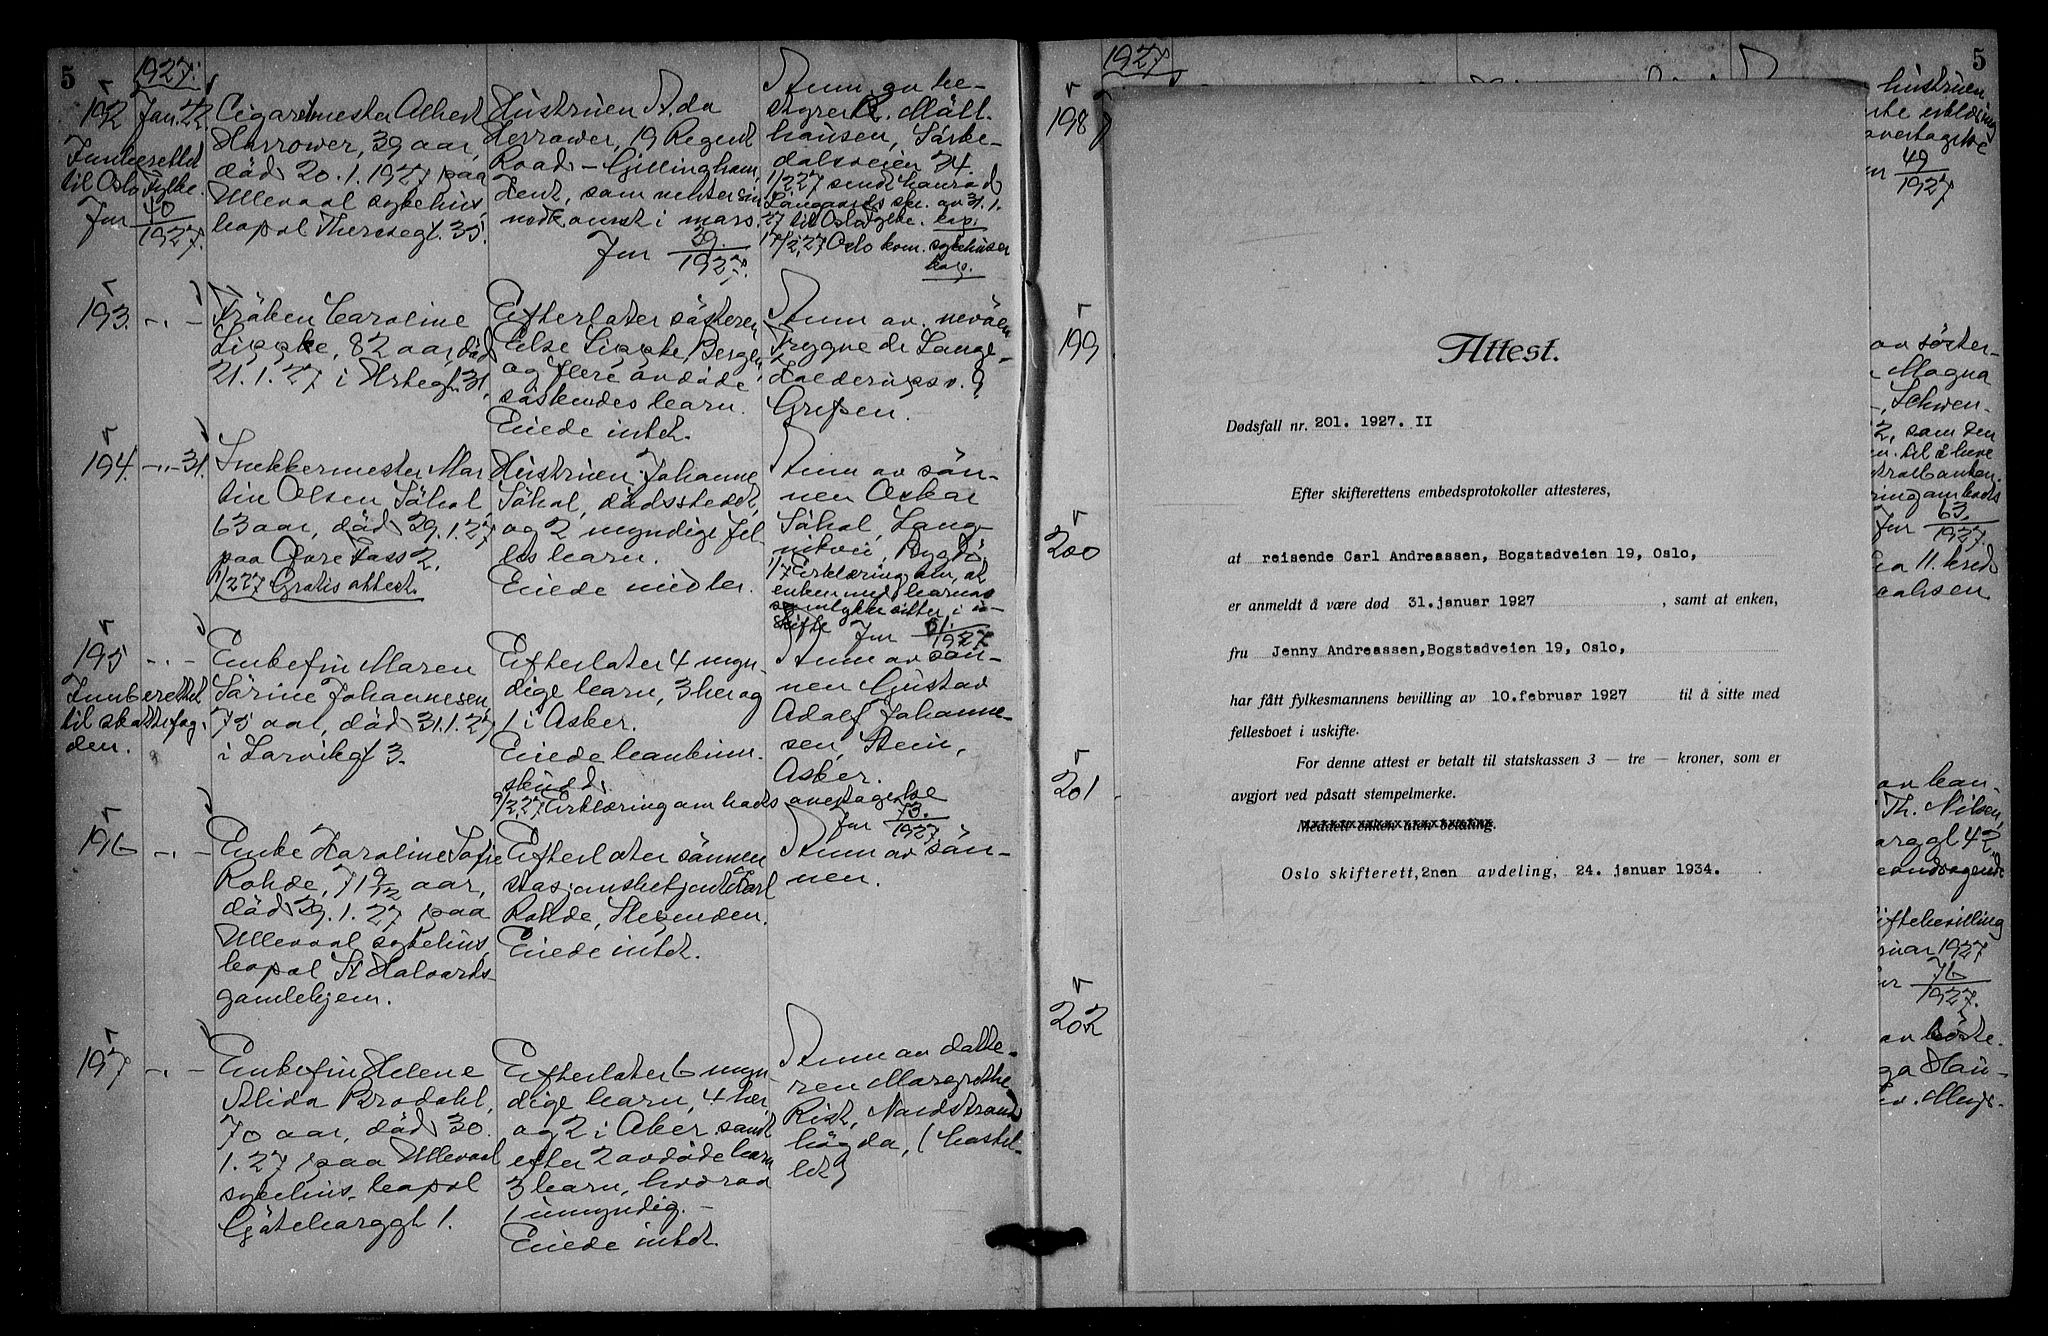 5
1927.
192
Jan. 22
Indberettet
til Oslo Fylke.
Jnr 40
1927.
Cigarmester Albert
Harrower, 39 aar,
död 20.1.1927 paa
Ullevaal sykehus,
bopæl Theresegt. 35.
Hustruen Ada
Herrower, 19 Regent
Road - Gillingham,
som venter sin
nedkomst i mars.
Jnr 39.
1927.
Anm. av be-
styrer R. Mält-
hausen, Sörke-
dalsveien 74.
1/2 27 sendt
skr. av 31.1.
27 til Oslo fylke.
17/2 27 Oslo kom. sykehuser
193.
-"-
Fröken Caroline
Lippke, 82 aar, död
21.1.27 i
Efterlater sösteren
Else Lippke, Bergen,
og flere avdöde
söskendes barn.
Eiede intet.
Anm av. nevöen
Trygve de Lange-
9
Grefsen.
194.
-"- 31.
Snekkermester Mar
tin Olsen Söhol,
63 aar, död 29.1.27
paa Övre Foss 2.
1/2 27 Gratis attest.
Hustruen Johanne
Söhol, dödsstedet,
og 2 myndige fel-
les barn.
Eiede midler.
Anm av sön-
nen Oskar
Söhol, Lang-
vikvei, Bygdö.
1/7 Erklæring om, at
enken med barnas
samtykke sitter i u-
skifte Jnr 61.
1927
195
-"-
Innberettet
til skattefog-
den.
Enkefru Maren
Sörine Johannesen,
75 aar, död 31.1.27
i Larvikgt 3.
Efterlater 4 myn-
dige barn, 3 her og
1 i Asker.
Eiede bankinn-
skudd.
9/2 27 Erklæring om bods
overtagelse
Jnr 73.
1927
Anm av sön-
nen Gustav
Adolf Johanne-
sen, Stein,
Asker.
196
-"-
Enke Karoline Sofie
Rohde, 71 9/12 aar,
död 29.1.27 paa
Ullevaal sykehus,
bopæl St Halvards-
gamlehjem.
Efterlater sönnen
stasjonsbetjent Carl
Rohde, Slependen.
Eiede intet.
Anm av sön-
nen.
197
-"-
Enkefru Helene
Alida Brodahl,
70 aar, död 30.
1.27 paa Ullevaal
sykehus, bopæl
Göteborggt 1.
Efterlater 6 myn
dige barn, 4 her,
og 2 i Aker samt
efter 2 avdöde barn
3 barn, hvorav
1 umyndig.-
Eiede intet.
Anm av datte-
ren Margrethe
Rist, Nordstrand
högda, (Kastel-
let)
1927
5
198
199
200
201
202
Attest.
Dødsfall nr. 201. 1927. II
Efter skifterettens embedsprotokoller attesteres,
at reisende Carl Andreassen, Bogstadveien 19, Oslo,
er anmeldt å være død 31.januar 1927 , samt at enken,
fru Jenny Andreassen,Bogstadveien 19, Oslo,
har fått fylkesmannens bevilling av 10.februar 1927 til å sitte med
fellesboet i uskifte.
For denne attest er betalt til statskassen 3 — tre — kroner, som er
avgjort ved påsatt stempelmerke.
Meddelt enken uten betaling.
Oslo skifterett, 2nen avdeling, 24. januar 1934.
hustruen
erklæring
overtagelse
49
1927
av söster-
Magna
Schwen-
2, som den
til å heve
63.
Jnr 1927.
11. kreds
av
Th. Nilsen,
42
uskiftebevilling
1927
76
1927.